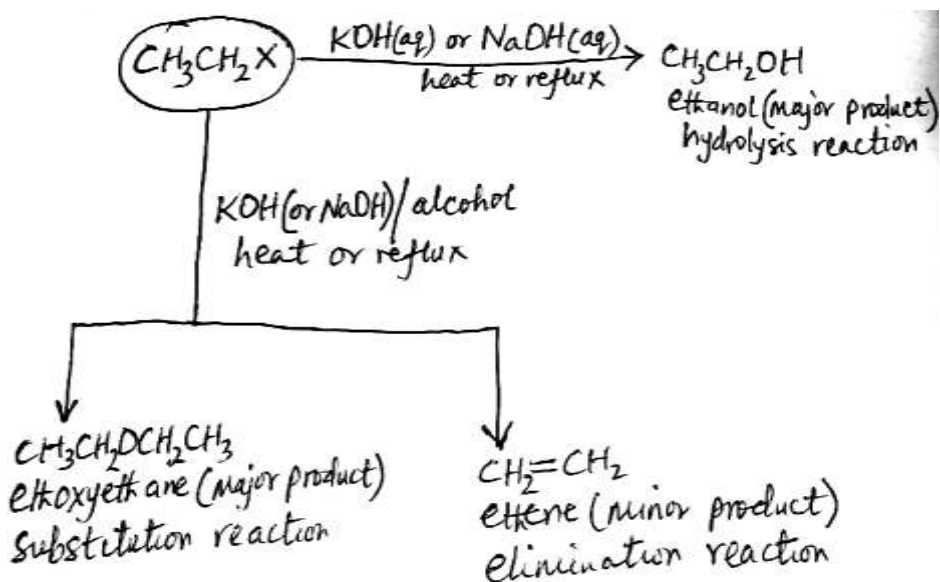 CH₃CH₂X
KOH(aq) or NaOH(aq)
heat or reflux
CH₃CH₂OH
ethanol (major product)
hydrolysis reaction
KOH(or NaOH)/alcohol
heat or reflux
CH₃CH₂OCH₂CH₃
ethoxyethane (major product)
substitution reaction
CH₂=CH₂
ethene (minor product)
elimination reaction